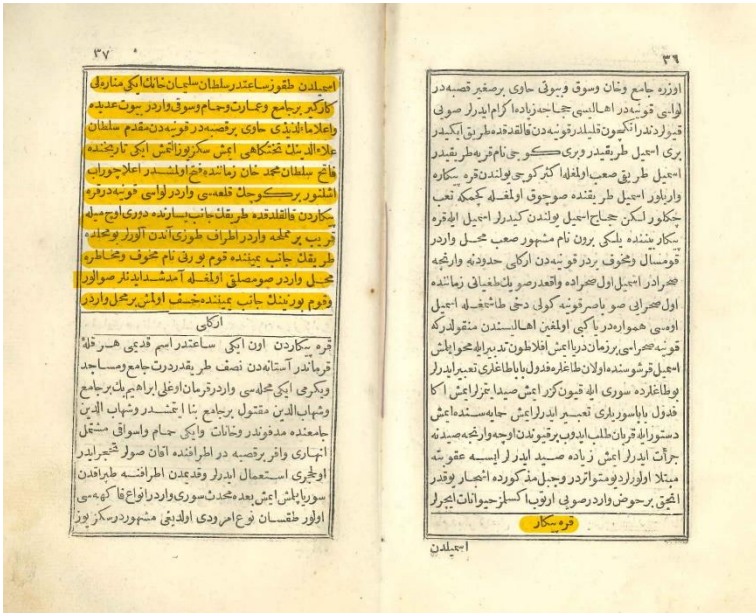 ٣٦
اوزره جامع وخان وسوق وبيوتى حاوى برصغير قصبه در
لواسى قونيه در اهاليسى حجاجه زياده اكرام ايدرلر صويى
قيولردندر انكچون قليلدر قونيه دن قالقدقده طريق ايكيدر
برى اسميل طريقيدر وبرى كوچى نام قريه طريقيدر
اسميل طريقى صعب اولمغله اكثر كوچى يولندن قره پيكاره
واريلور اسميل طريقنده صوجوق اولمغله كيجمكه تعب
چكلور لكن حجاج اسميل يولندن كيدرلر اسميل ايله قره
پيكار بيننده يلكى برون نام مشهور صعب محل واردر
قومسال ومخوف بردر قونيه دن اركلى حدودينه وارنجه
صحرادر اسميل اول صحراده واقعدر صويك طغيانى زماننده
اول صحرايى صو باصر قونيه كولى دخى طاشمغله اسميل
اوه سى همواره در باكى اولمغين اهاليسندن منقولدر كه
قونيه صحراسى برزمان دريا ايمش افلاطون تدبير ايله محو ايلمش
اسميل قرشوسنده اولان طاغلره فدول بابا طاغلرى تعبير ايدرلر
بوطاغلرده سورى ايله قيون كزر ايمش صيد ايتمزلر ايمش اكا
فدول بابا سوريلرى تعبير ايدرلر ايمش حمايه سنده ايمش
دستور ايله قربان طلب ايدوب برقيوندن اوچه وارنجه صيدنه
جرأت ايدرلر ايمش زياده صيد ايدرلر ايسه عقوبته
مبتلا اولورلر ديو متواتردر وجبل مذكورده اشجار يوقدر
انجق برحوض واردر صويى ارتوب اكسلمز حيوانات ايچرلر
قره پيكار
اسميلدن
٣٧
اسميلدن طقوز ساعتدر سلطان سليمان خانك ايكى مناره لى
كاركير برجامع وعمارت وحمام وسوق واردر بيوت عديده
واعلا ماء لذيذى حاوى برقصبه در قونيه دن مقدم سلطان
علاءالدينك تختكاهى ايمش سكز يوز التمش ايكى تاريخنده
فاتح سلطان محمد خان زماننده فتح اولمشدر اعلا چوراب
اشلنور بركوچك قلعه سى واردر لواسى قونيه در قره
پيكاردن قالقلدقده طريقك جانب يسارنده دورى اوچ ميله
قريب بر مملحه واردر اطراف طوزى آندن آلورلر بومحلده
طريقك جانب يميننده قوم بورنى نام مخوف ومخاطره
محل واردر صومصلقى اولمغله آمدشد ايدنلر صوالور
وقوم بورنينك جانب يميننده خسف اولمش برمحل واردر
اركلى
قره پيكاردن اون ايكى ساعتدر اسم قديمى هرقله
قرماندر آستانه دن نصف طريقدر درت جامع ومساجد
ويكرمى ايكى محله سى واردر قرمان اوغلى ابراهيم بك برجامع
وشهاب الدين مقتول برجامع بنا ايتمشدر وشهاب الدين
جامعنده مدفوندر وخانات وايكى حمام واسواقى مشتمل
انهارى وافر برقصبه در اطرافنده آقان صولر تحجر ايدر
اولحجرى استعمال ايدرلر وقديمدن اطرافنه طپراقدن
سور ياپلمش ايمش بعده محدث سورى واردر انواع فاكهه سى
اولور طقسان نوع امرودى اولديغى مشهوردر سكز يوز